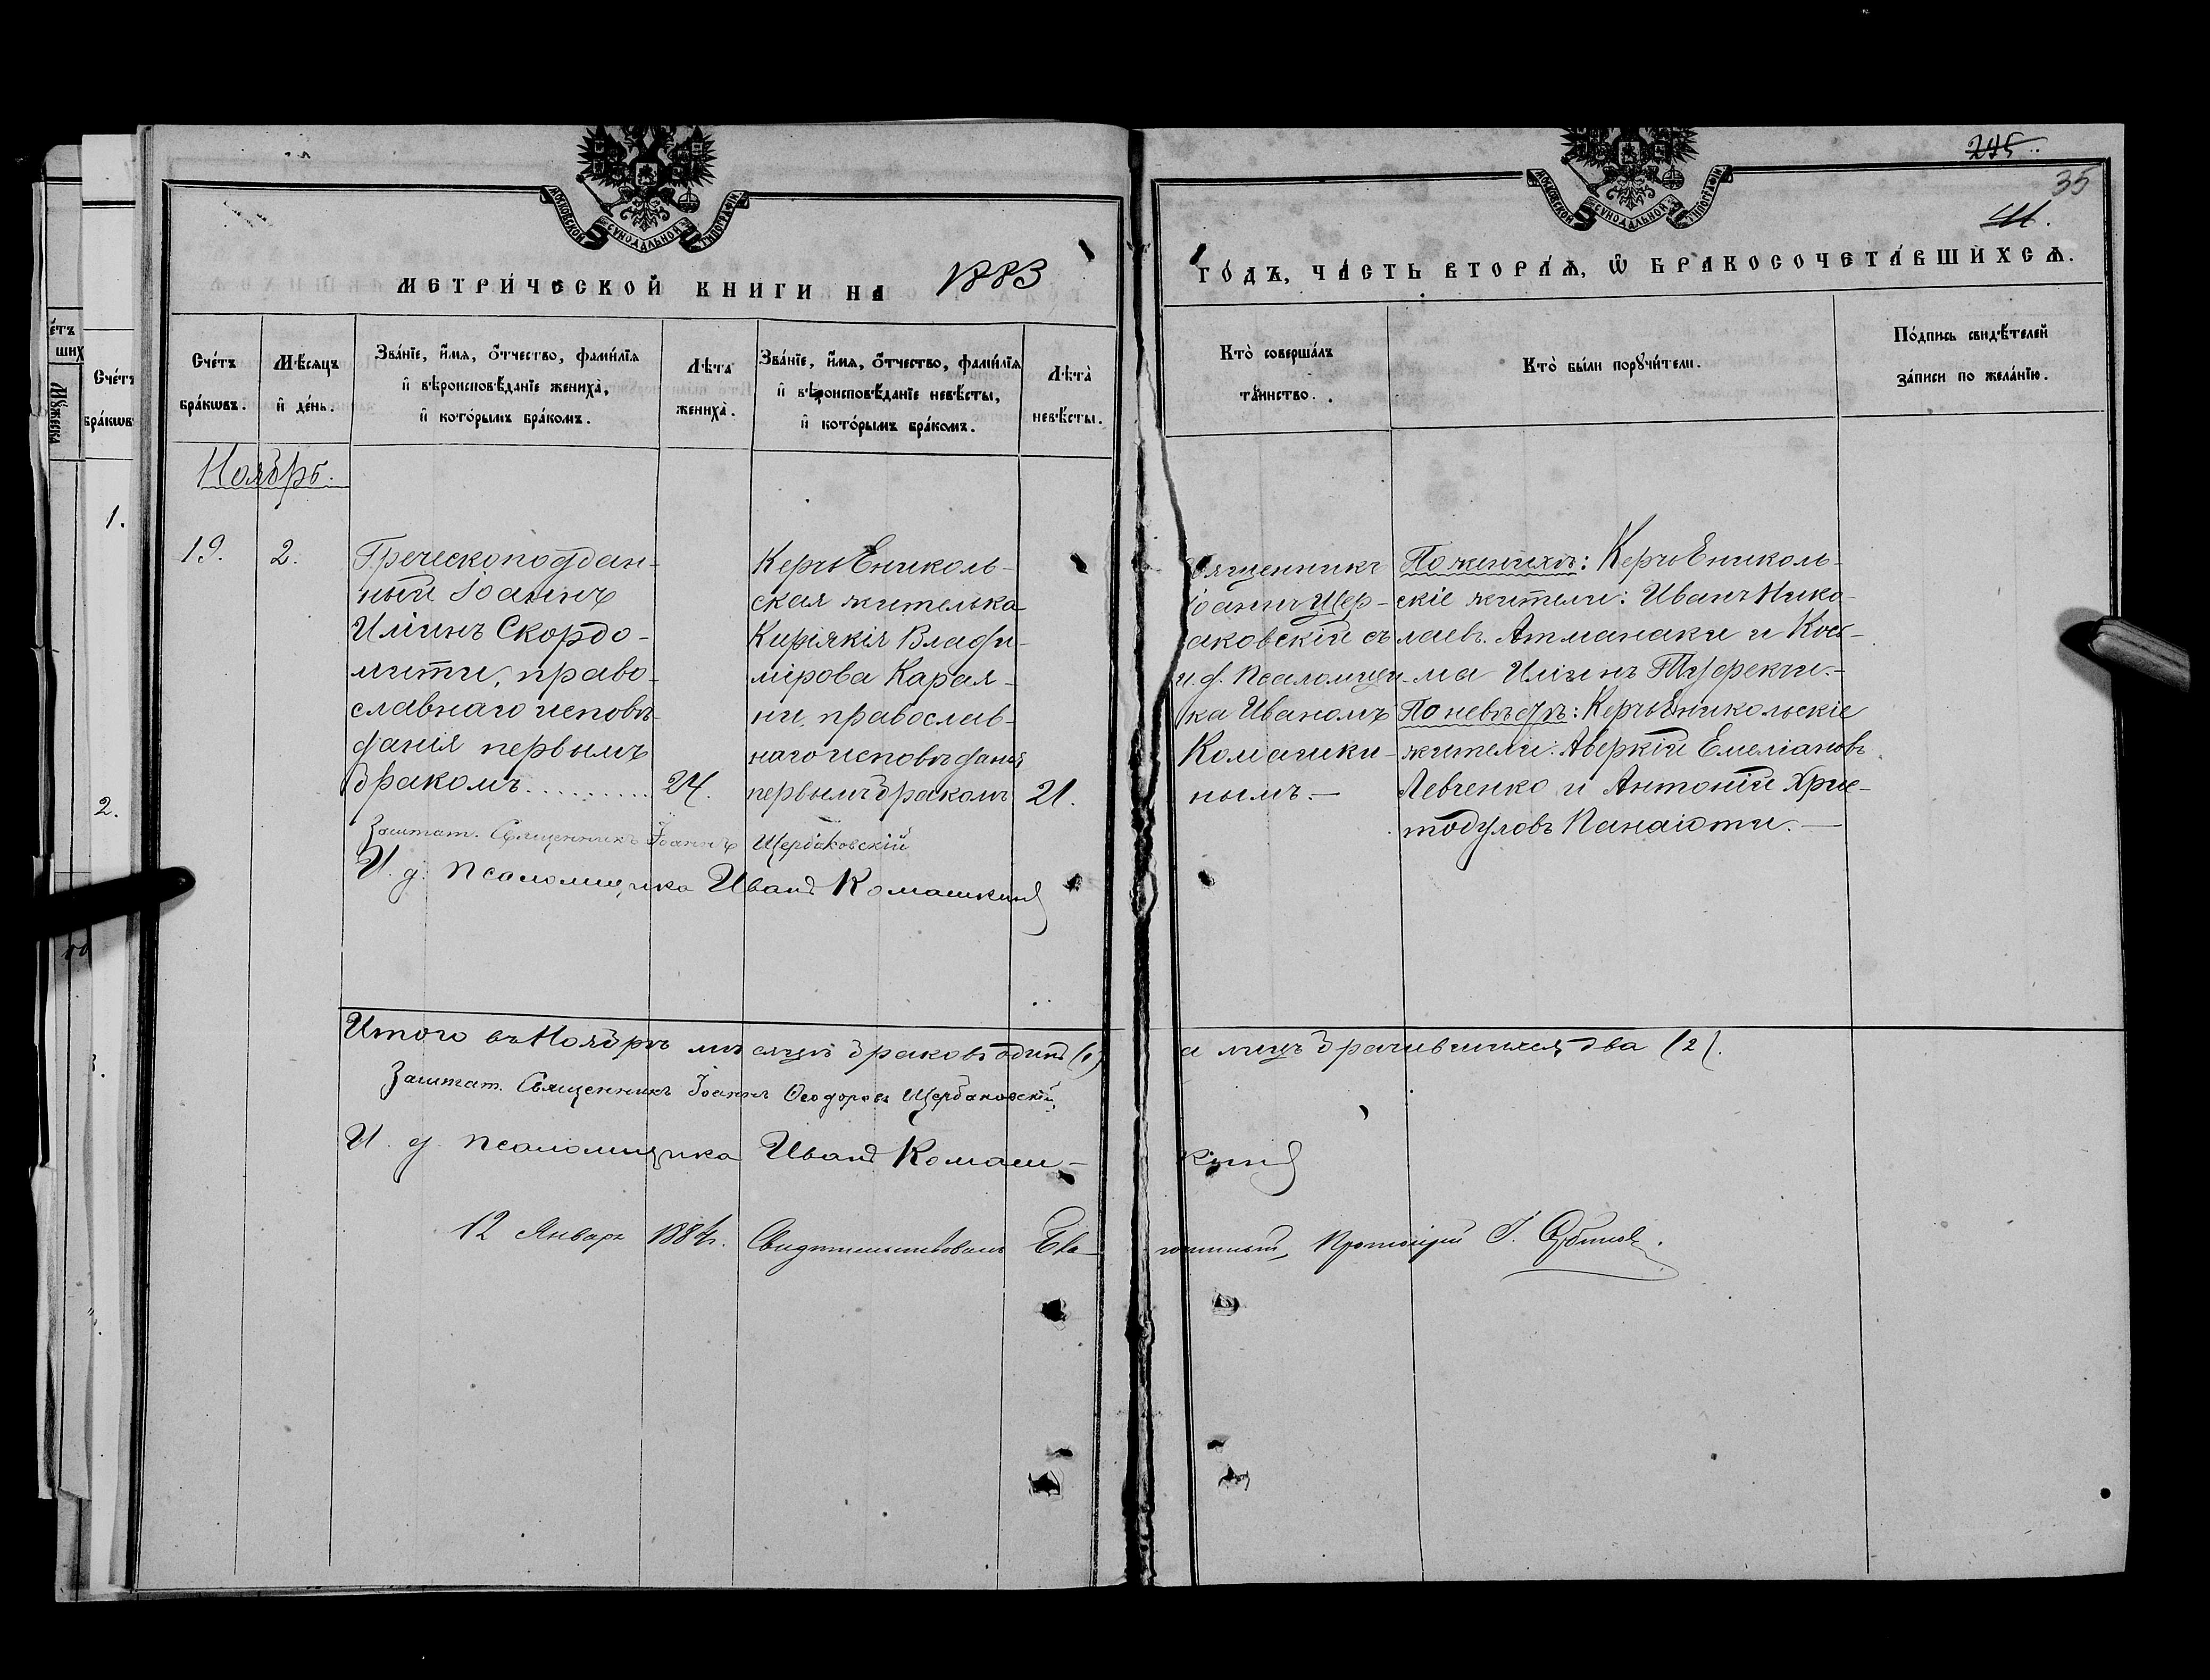 МОСКОВСКОЙ СѴНОДАЛЬНОЙ ТИПОГРАФІИ.
МОСКОВСКОЙ СѴНОДАЛЬНОЙ ТИПОГРАФІИ.
245
35
МЕТРИ́ЧЕСКОЙ КНИГИ НА 1883
ГО́ДЪ, ЧА́СТЬ ВТОРА́Ѧ, Ѽ БРАКОСОЧЕТА́ВШИХСѦ.
Сче́тъ
бра́кωвъ.
Мѣ́сяцъ
и҆ де́нь.
Зва́нїе, и҆́мя, ѻ҆́тчество, фами́лїя
и҆ вѣроисповѣ́данїе жениха̀,
и҆ кото́рымъ бра́комъ.
Лѣта̀
жениха̀.
Зва́нїе, и҆́мя, ѻ҆́тчество, фами́лїя
и҆ вѣроисповѣ́данїе невѣ́сты,
и҆ кото́рымъ бра́комъ.
Лѣта̀
невѣ́сты.
Кто̀ соверша́лъ
та́инство.
Кто̀ бы́ли порꙋчи́тели.
По́дпись свидѣ́телей
за́писи по жела́нїю.
Ноябрь.
19.
2.
Греческоподдан-
ный Іоаннъ
Иліинъ Скордо-
мити, право-
славнаго исповѣ-
данія первымъ
бракомъ..........
24.
КерчьЕниколь-
ская жителька
Киріякія Влади-
мірова Карая-
ни, православ-
наго исповѣданія
первымъ бракомъ
21.
Священникъ
Іоаннъ Щер-
баковскій съ
и. д. псаломщи-
ка Иваномъ
Комашки-
нымъ.—
По женихѣ: КерчьЕниколь-
скіе жители: Иванъ Нико-
лаевъ Атманаки и Кось-
ма Иліинъ Туфекчи.—
По невѣстѣ: КерчьЕникольскіе
жители: Аверкій Емеліановъ
Левченко и Антоній Хрис-
тодуловъ Панаіоти.—
Заштат. Священникъ Іоаннъ Щербаковскій
И. д. псаломщика Иванъ Комашкинъ
Итого въ Ноябрѣ мѣсяцѣ браковъ одинъ (1) а лицъ брачившихся два (2).
Заштат. Священникъ Іоаннъ Ѳеодоровъ Щербаковскій,
И. д. псаломщика Иванъ Комаш-кинъ
12 Января 1884 г. Свидѣтельствовалъ Бла-гочинный, Протоіерей І.
1.
2.